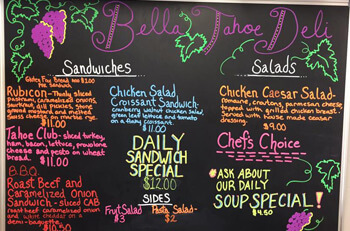 Bella Tahoe Deli
Sandwiches
Gluten Free Bread add $2.00
Per Sandwich
Rubicon- Thinly sliced
pastrami, caramelized onions,
sauerkraut, dill pickles, stone
ground mustard and melted
swiss cheese on marble rye.
$11.00
Tahoe Club- sliced turkey,
ham, bacon, lettuce, provolone
cheese and pesto on wheat
bread. $11.00
B.B.Q.
Roast Beef and
Caramelized Onion
Sandwich- sliced CAB
roast beef, caramelized onions
and white cheddar on a
demi-baguette.
$11.50
Chicken Salad
Croissant Sandwich-
cranberry walnut chicken salad,
green leaf lettuce and tomato
on a flaky croissant.
$11.00
DAILY
SANDWICH
SPECIAL
$12.00
SIDES
Fruit Salad- Pasta Salad-
$3 $2
Salads
Chicken Caesar Salad-
Romaine, croutons, parmesan cheese,
topped with grilled chicken breast.
Served with house made caesar
dressing. $9.00
Chef's Choice
*ASK ABOUT
OUR DAILY
SOUP SPECIAL!
$4.50